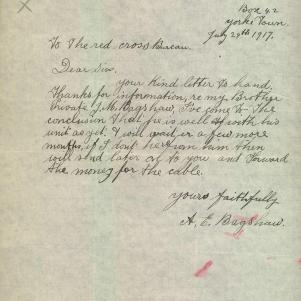 Box 42
Yorke Town.
July 29th 1917.
To The red cross Bureau.
Dear Sir.
Your Kind letter to hand.
Thanks for information, re my Brother
Private J. M. Bagshaw, I've come to The
conclusion That he is well & with his
unit as yet. I will wait er a few more
months, if I dont hear from him then
will send later on to you and Forward
the money for the cable.
Yours Faithfully
A. E. Bagshaw.